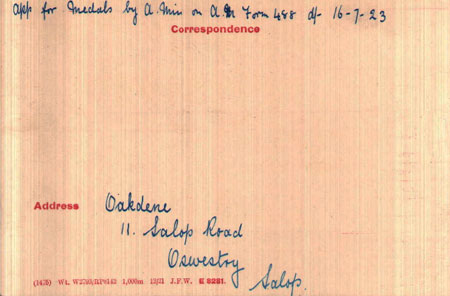 App for Medals by A. Min on A.M Form 488 d/- 16-7-23
Correspondence
Address
Oakdene
11. Salop Road
Oswestry
Salop.
1,000m 12/21 J.F.W. E 8281.